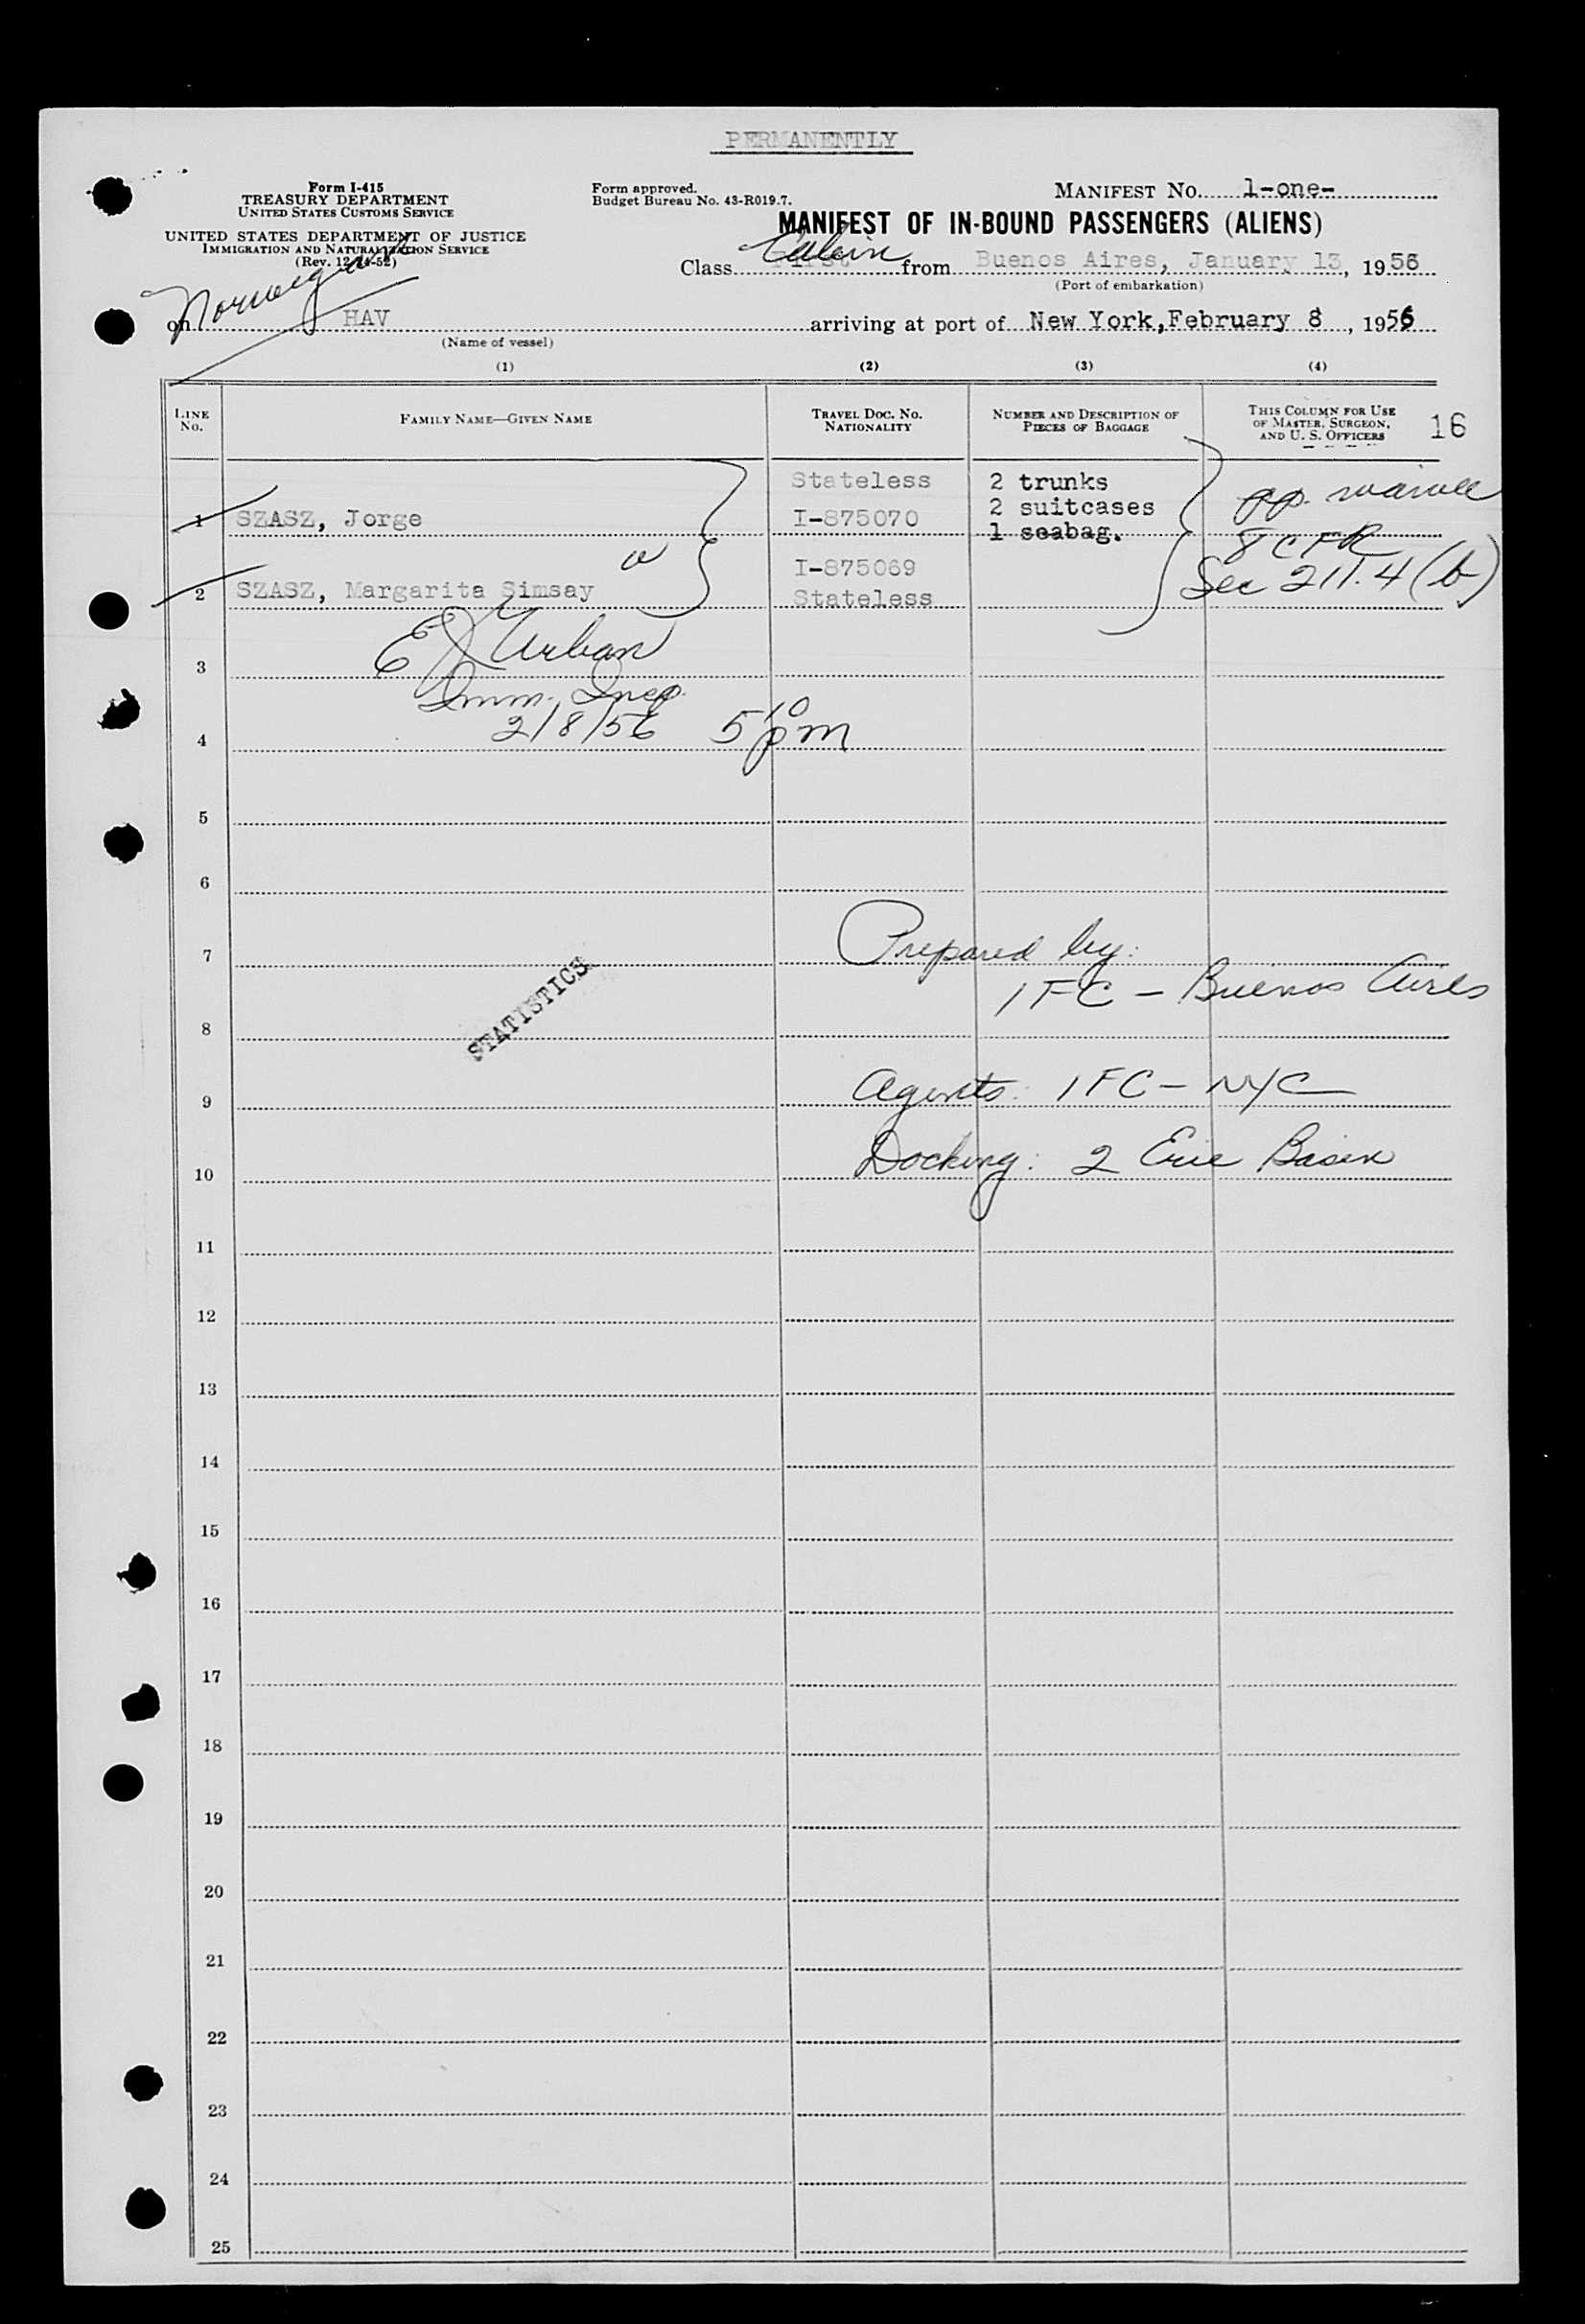 PERMANENTLY
Form I-415
TREASURY DEPARTMENT
UNITED STATES CUSTOMS SERVICE
UNITED STATES DEPARTMENT OF JUSTICE
IMMIGRATION AND NATURALIZATION SERVICE
(Rev. 12-24-52)
Form approved.
Budget Bureau No. 43-R019.7.
MANIFEST NO. 1-one-
MANIFEST OF IN-BOUND PASSENGERS (ALIENS)
Class First Cabin from Buenos Aires, January 13, 1956
(Port of embarkation)
Norwegian
on HAV arriving at port of New York, February 8, 1956
(Name of vessel)
(1) (2) (3) (4)
LINE NO. FAMILY NAME—GIVEN NAME TRAVEL DOC. NO. NATIONALITY NUMBER AND DESCRIPTION OF PIECES OF BAGGAGE THIS COLUMN FOR USE OF MASTER, SURGEON, AND U. S. OFFICERS 16
Stateless 2 trunks
2 suitcases pp. waived
1 SZASZ, Jorge I-875070 1 seabag.
8 CFR
I-875069 Sec 211.4 (b)
2 SZASZ, Margarita Simsay Stateless
E J Urban
3
Imm. Insp.
4 2/8/56 5 10 pm
5
6
7 Prepared by:
STATISTICS IFC - Buenos Aires
8
9 Agents: IFC - NYC
10 Docking: 2 Erie Basin
11
12
13
14
15
16
17
18
19
20
21
22
23
24
25